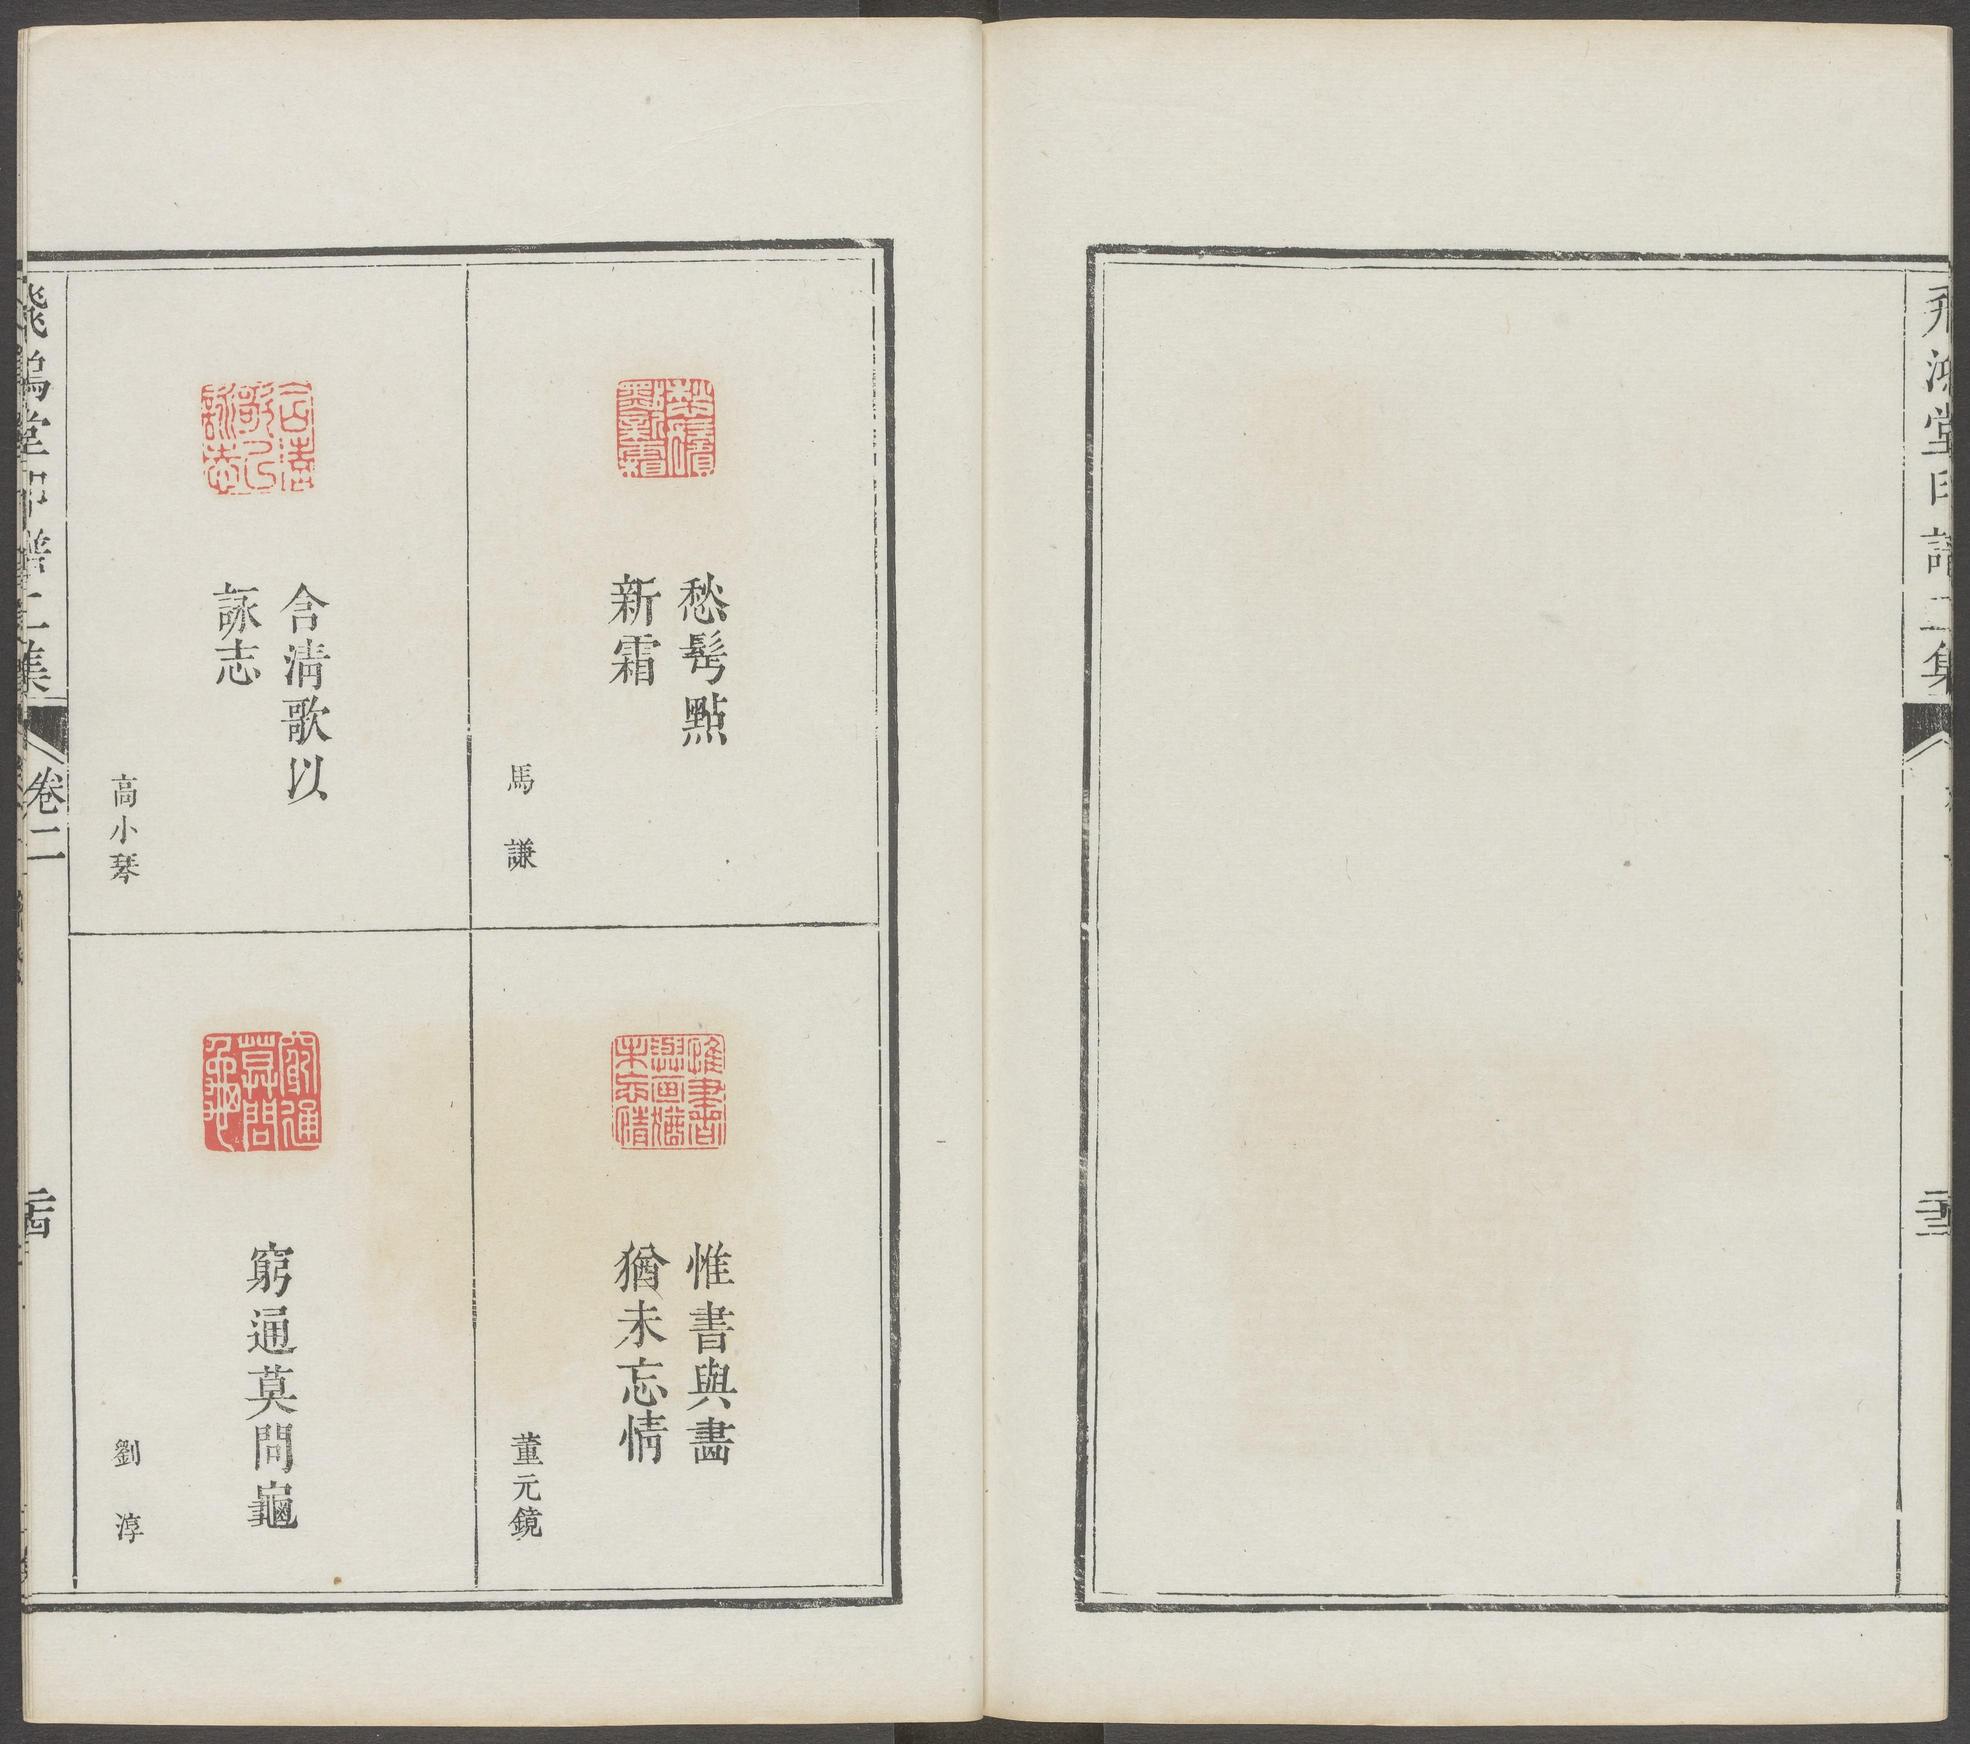 飛鴻堂印譜二集
二十三
愁髩點
新霜
馬謙
惟書與畵
猶未忘情
董元鏡
含清歌以
詠志
高小琴
窮通莫問龜
劉淳
飛鴻堂印譜二集
卷二
二十四